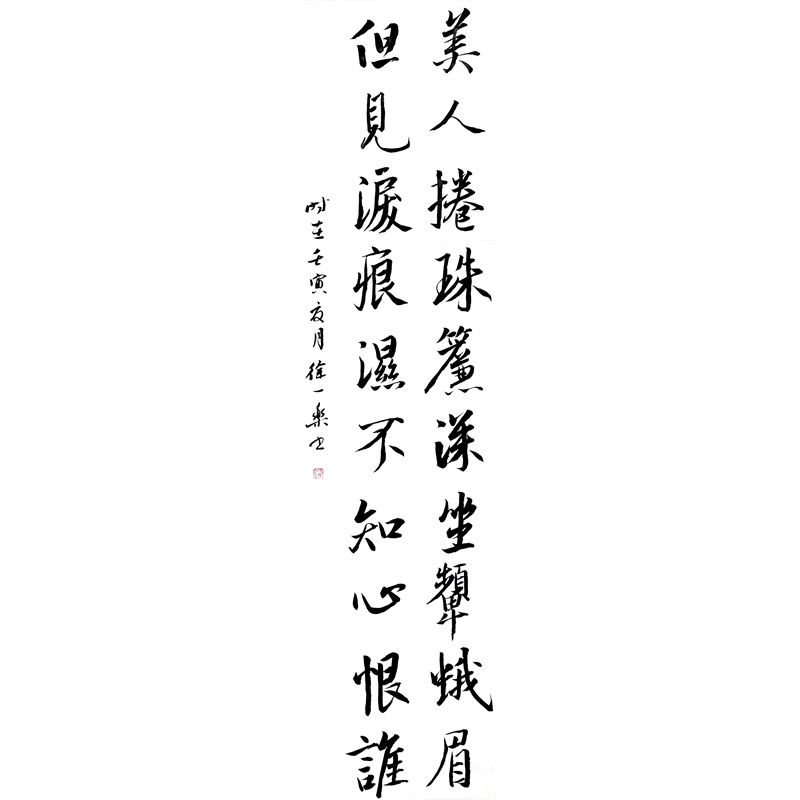 美人捲珠簾深坐顰蛾眉
但見淚痕濕不知心恨誰
時在壬寅夏月徐一樂书